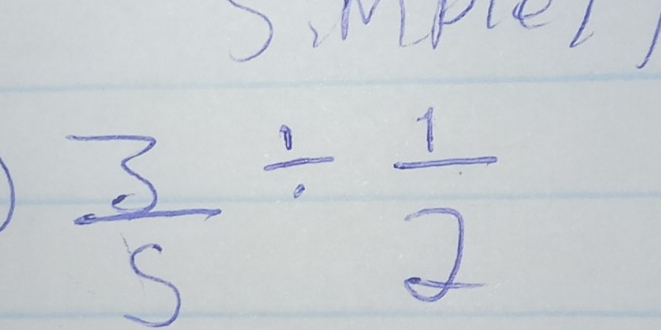 ) 3/5 ÷ 1/2